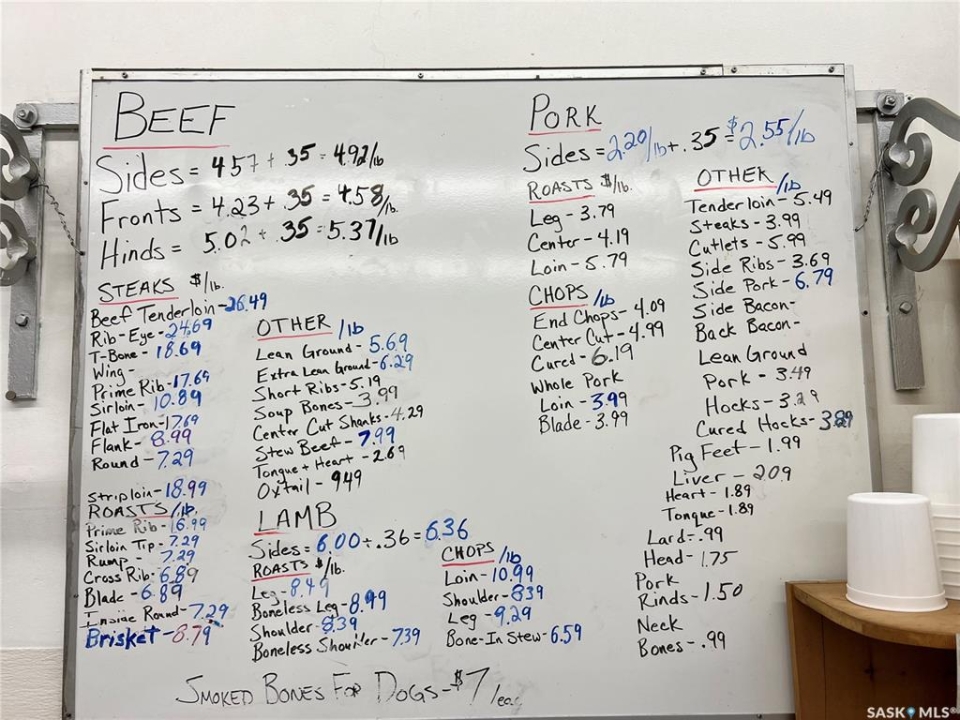 BEEF
Sides = 4.57 + .35 = 4.92/lb
Fronts = 4.23 + .35 = 4.58/lb.
Hinds = 5.02 + .35 = 5.37/lb
STEAKS $/lb.
Beef Tenderloin - 26.49
Rib-Eye - 24.69
T-Bone - 18.69
Wing -
Prime Rib - 17.69
Sirloin - 10.89
Flat Iron - 17.69
Flank - 8.99
Round - 7.29
Striploin - 18.99
ROASTS /lb.
Prime Rib - 16.99
Sirloin Tip - 7.29
Rump - 7.29
Cross Rib - 6.89
Blade - 6.89
Inside Round - 7.29
Brisket - 8.79
OTHER /lb
Lean Ground - 5.69
Extra Lean Ground - 6.29
Short Ribs - 5.19
Soup Bones - 3.99
Center Cut Shanks - 4.29
Stew Beef - 7.99
Tongue + Heart - 2.69
Oxtail - 949
LAMB
Sides = 6.00 + .36 = 6.36
ROASTS $/lb.
Leg - 8.49
Boneless Leg - 8.99
Shoulder - 8.39
Boneless Shoulder - 739
CHOPS /lb
Loin - 10.99
Shoulder - 839
Leg - 9.29
Bone-In Stew - 6.59
PORK
Sides = 2.20/lb + .35 = $2.55/lb
ROASTS $/lb.
Leg - 3.79
Center - 4.19
Loin - 5.79
CHOPS /lb
End Chops - 4.09
Center Cut - 4.99
Cured - 6.19
Whole Pork
Loin - 3.99
Blade - 3.99
OTHER /lb
Tenderloin - 5.49
Steaks - 3.99
Cutlets - 5.99
Side Ribs - 3.69
Side Pork - 6.79
Side Bacon -
Back Bacon -
Lean Ground
Pork - 3.49
Hocks - 3.29
Cured Hocks - 3.89
Pig Feet - 1.99
Liver - 209
Heart - 1.89
Tongue - 1.89
Lard - .99
Head - 1.75
Pork
Rinds - 1.50
Neck
Bones - .99
SMOKED BONES FOR DOGS - $7/ea.
SASK MLS®